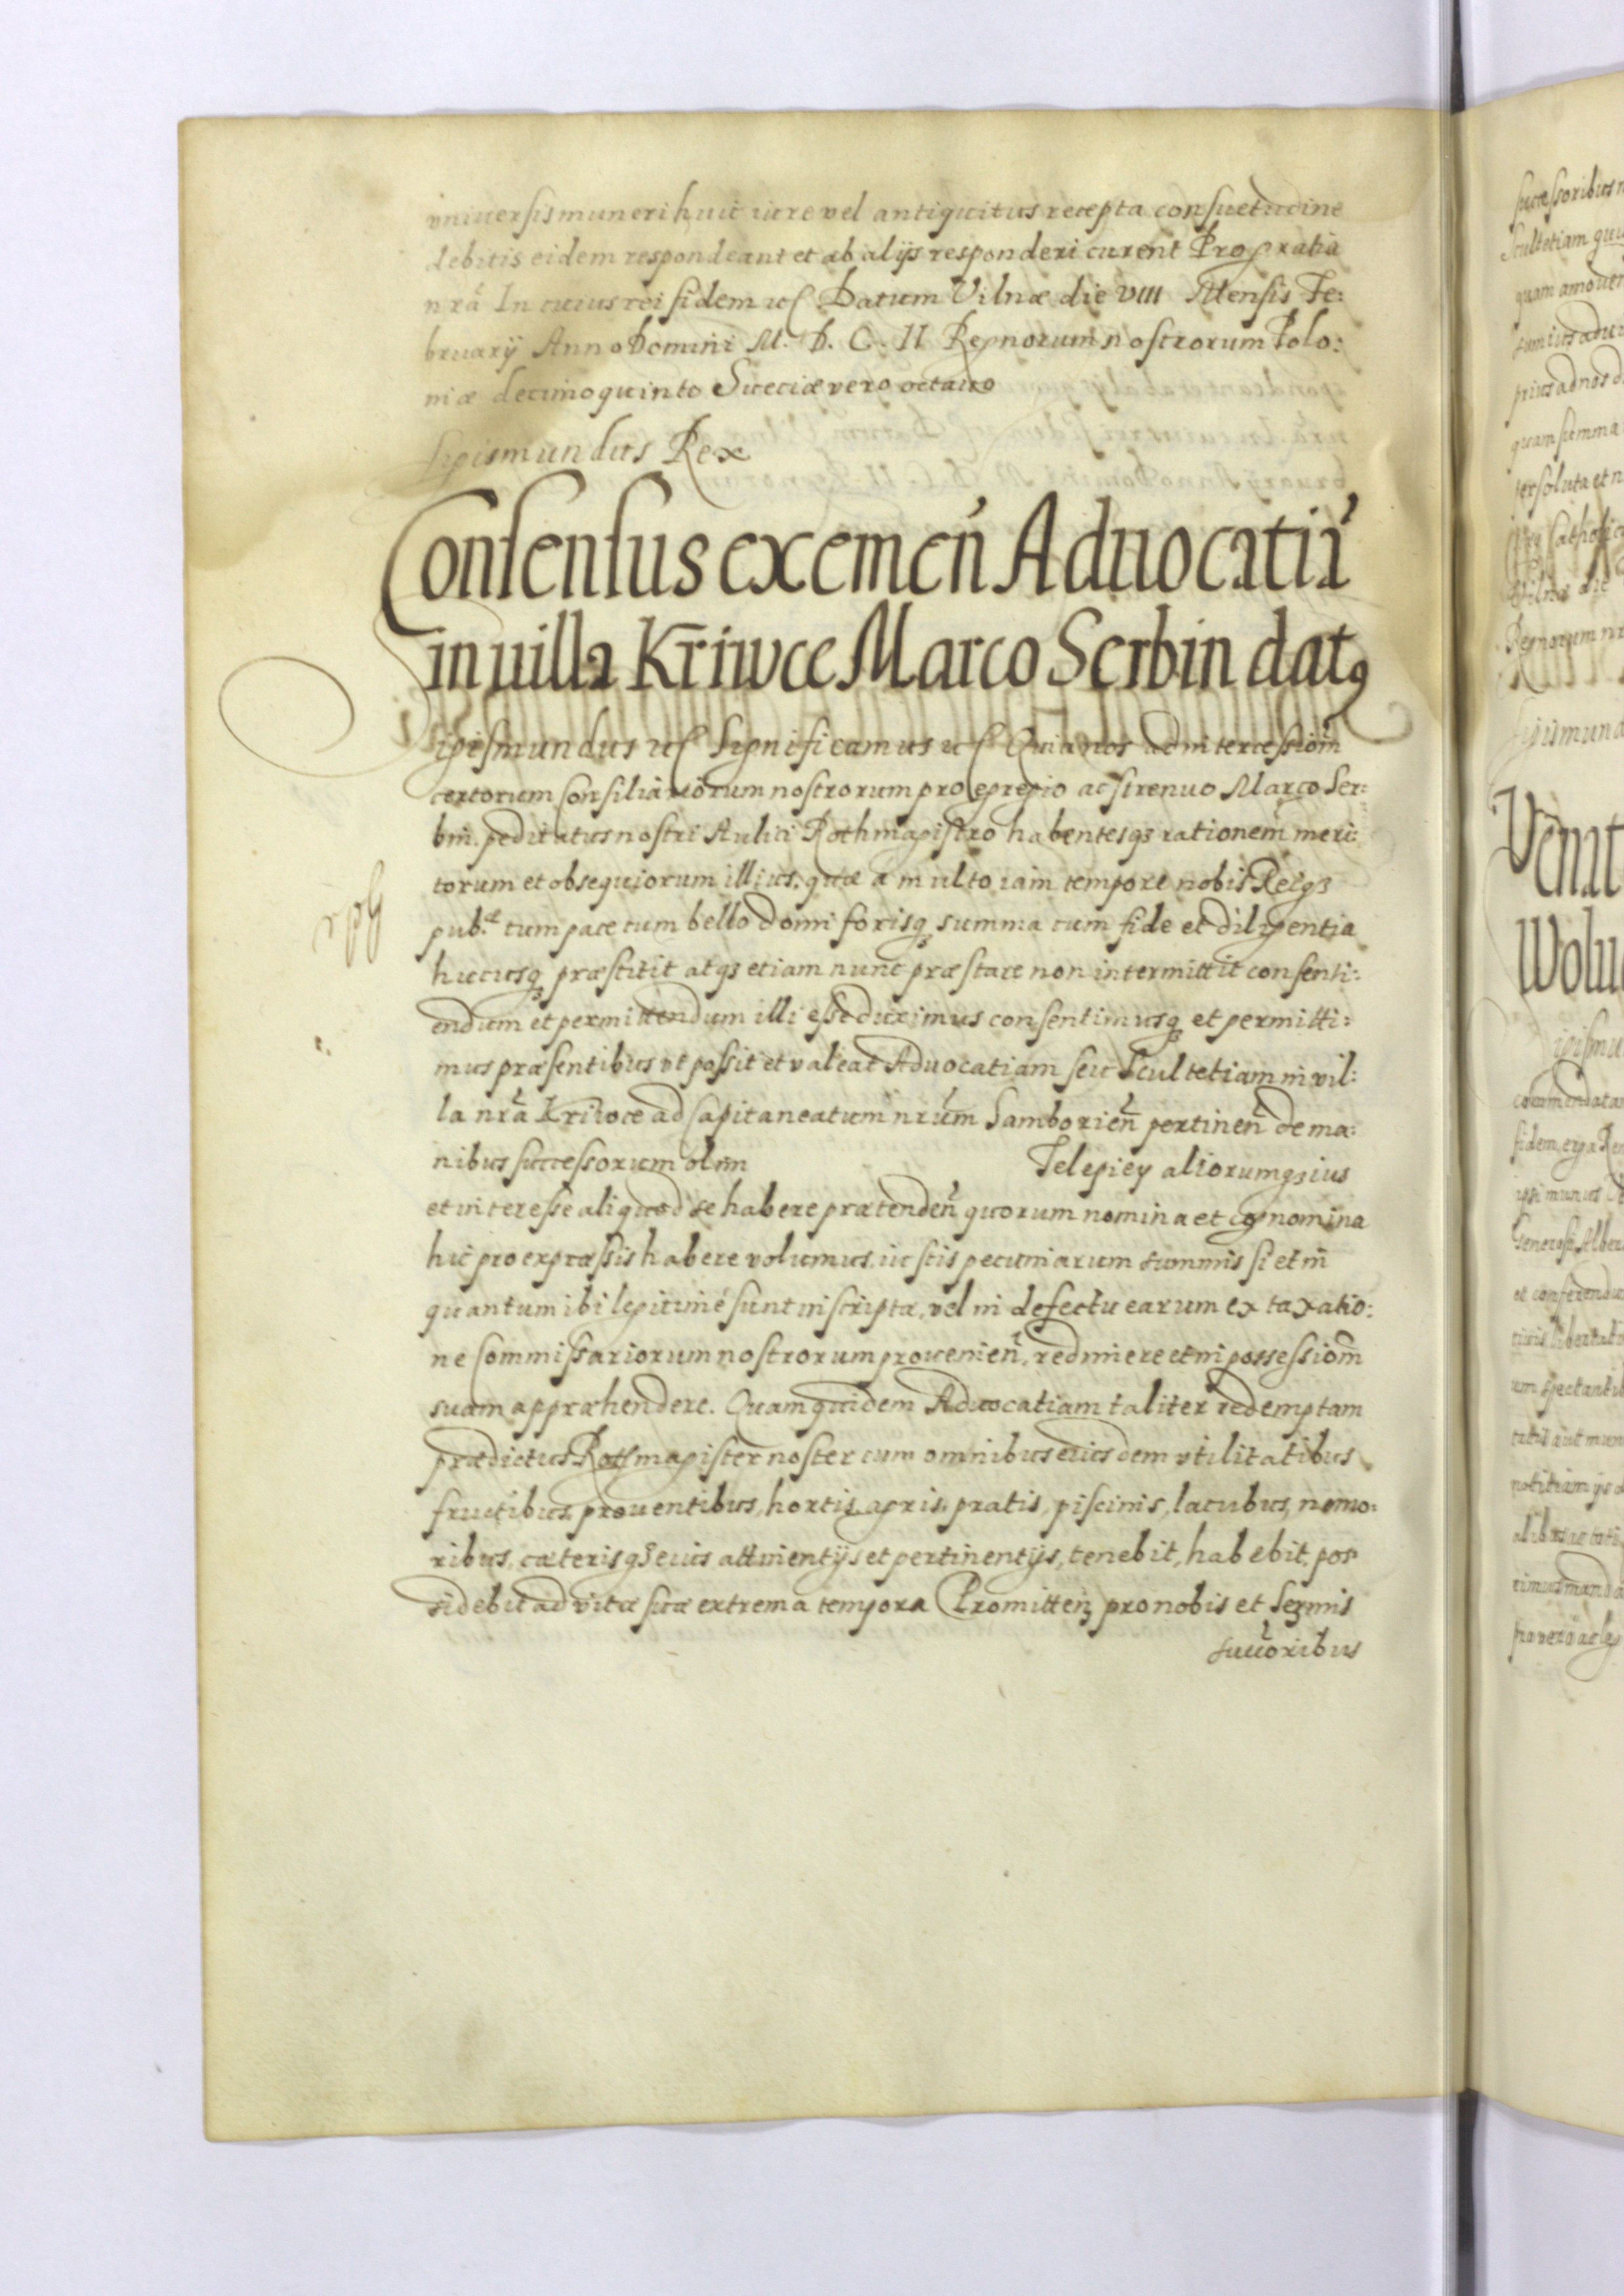 vniuersis muneri huic iure vel antiquitus recepta consuetudine
debitis eidem respondeant et ab alijs responderi curent Pro gratia
nrã In cuius rei fidem etc Datum Vilnæ die VIII Mensis Fe:
bruarij Anno Domini M. D. C. II Regnorum nostrorum Polo:
niæ decimoquinto Sueciæ vero octauo
Sigismundus Rex
Consensus exemeñ Aduocatiã
in uilla Kriwce Marco Serbin datq
Sigismundus etc Significamus etc Quia nos ad intercessiom̃
certorum Consiliariorum nostrorum pro egregio ac strenuo Marco Ser:
bin peditatus nostri Aulici Rothmagistro habentesq3 rationem meri:
torum et obsequiorum illius, quæ a multo iam tempore nobis Reiq3
pub.æ tum pace tum bello domi forisq3 summa cum fide et diligentia
hucusq3 præstitit atq3 etiam nunc præstare non intermittit consenti:
endum et permittendum illi esse duximus consentimusq3 et permitti:
mus præsentibus vt possit et valeat Aduocatiam seu Scultetiam in vil:
la nrã Kriwce ad Capitaneatum nrũm Samborieñ pertineñ de ma:
nibus successorum olim Telepiey aliorumq3 ius
et interesse aliquod se habere prætendeñ quorum nomina et cognomina
hic pro expræssis habere volumus, iustis pecuniarum summis si et in
quantum ibi legitimé sunt inscriptæ, vel in defectu earum ex taxatio:
ne Commissariorum nostrorum prouenieñ, redimere et in possessiom̃
suam appræhendere. Quamquidem Aduocatiam taliter redemptam
prædictus Rothmagister noster cum omnibus eiusdem vtilitatibus
fructibus, prouentibus, hortis, agris, pratis, piscinis, lacubus, nemo:
ribus, cæterisq3 eius attinentijs et pertinentijs, tenebit, habebit, pos
sidebit ad vitæ suæ extrema tempora Promitteñ pro nobis et Sermis
succoribus